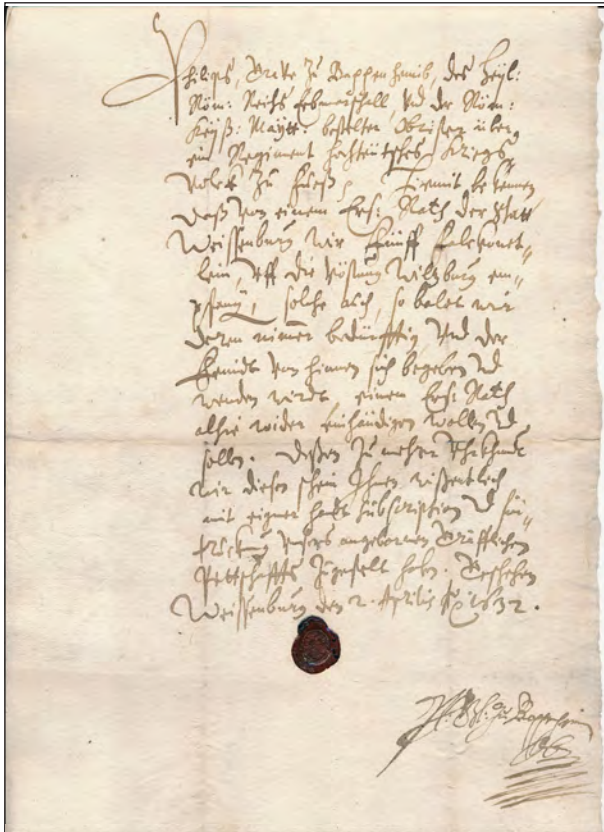 Philips, Grave zu Bappenheimb, des Heyl:
Röm: Reichs Erbmarschall, Vnd der Röm:
Keyß: Maytt: bestelter Obrister über
ein Regiment hochteütsches Kriegs
Volck zu Fueß, hiemit bekennen
daß von einem Ers: Rath der Statt
Weissenburg wir Fünff Falckonet-
lein, vff die Vöstung Wiltzburg em-
pfang, solche auch, so baldt wir
deren nimer bedürfftig Vnd der
Feindt von hinnen sich begeben Vnd
wenden wirdt, einem Ers: Rath
alhie wider einhändigen wollen Vnd
sollen. Deßen zu mehrer Vhrkhundt
wir diesen schein Ihnen wißentlich
mit eigner handt subscription Vnd für-
truckung Vnsers angebornen Gräfflichen
Pettschaffts zugestelt haben. Geschehen
Weissenburg den 2. Aprilis Ao 1632.